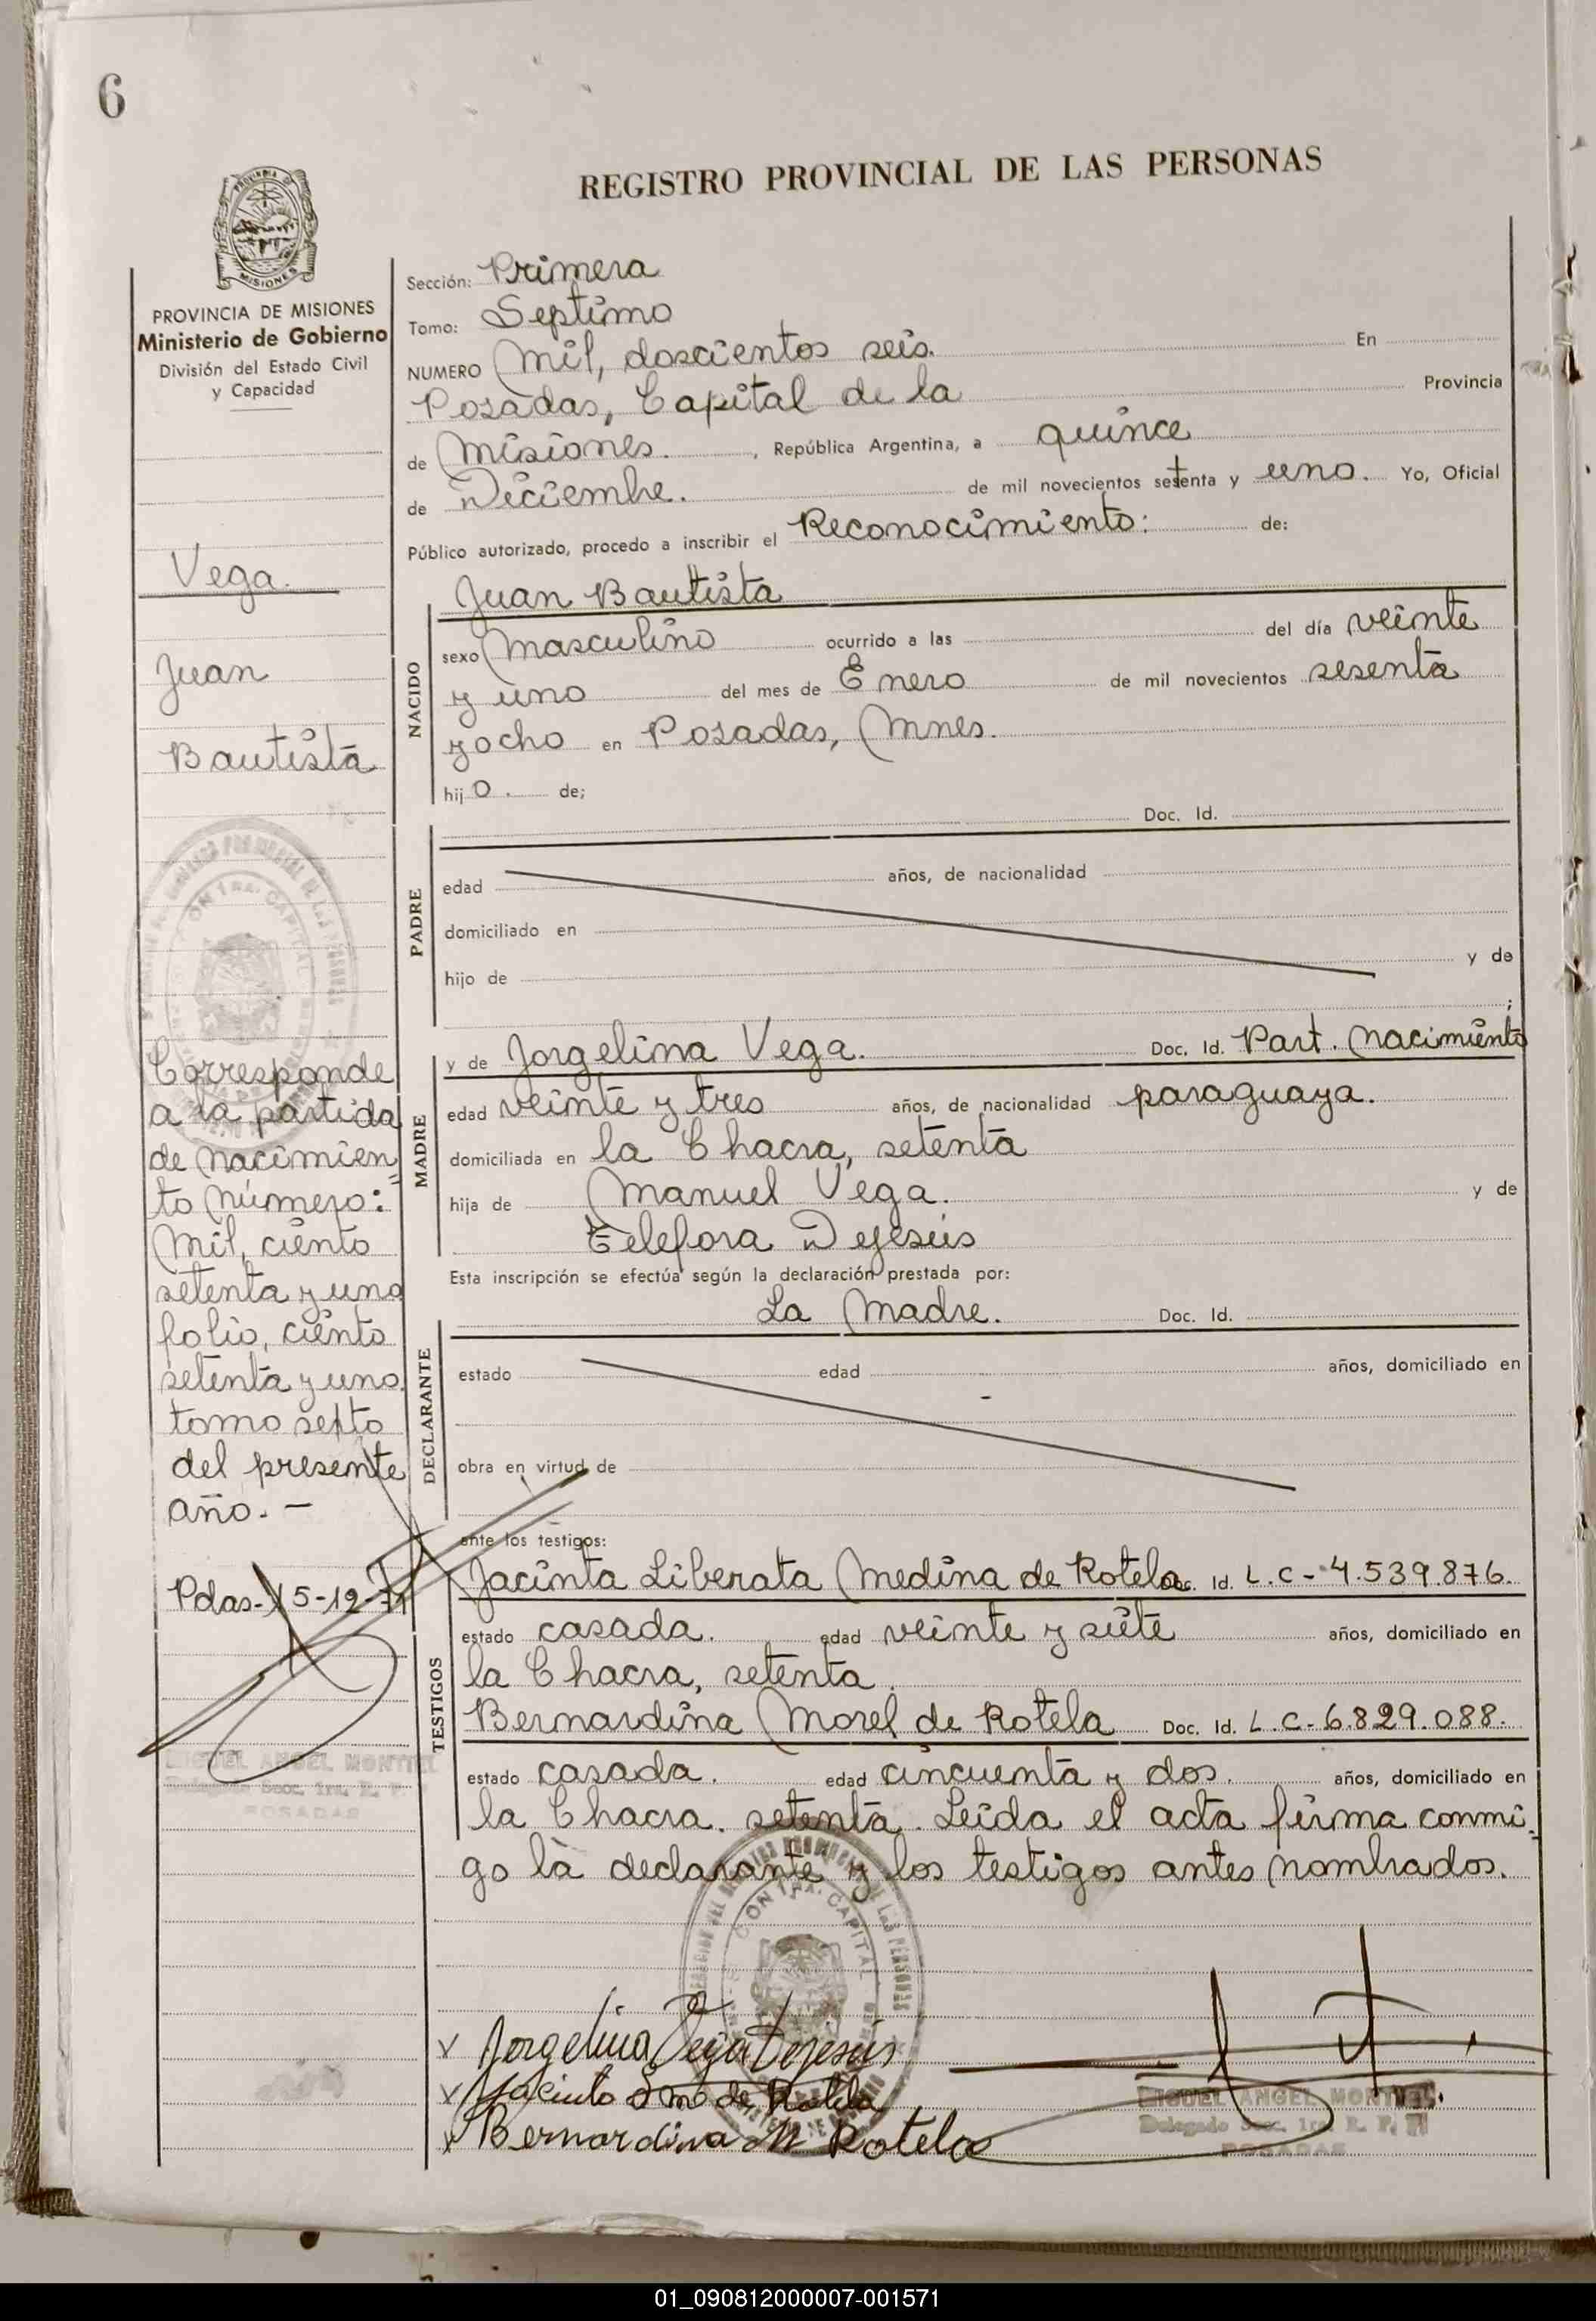 6
REGISTRO PROVINCIAL DE LAS PERSONAS
MISIONES
PROVINCIA DE MISIONES
Ministerio de Gobierno
División del Estado Civil
y Capacidad
Vega.
Juan
Bautista
Corresponde
a la partida
de nacimien
to número:
Mil, ciento
setenta y uno
folio, ciento
setenta y uno
tomo septo
del presente
año. -
Pdas-15-12-71
MIGUEL ANGEL MONTIEL
Delegado Secc. 1ra. R. P.
POSADAS
Sección: Primera
Tomo: Septimo
NUMERO Mil, doscientos seis. En
Posadas, Capital de la Provincia
de Misiones. , República Argentina, a quince
de Diciembre. de mil novecientos setenta y uno. Yo, Oficial
Público autorizado, procedo a inscribir el Reconocimiento: de:
NACIDO
Juan Bautista
sexo Masculino ocurrido a las del día veinte
y uno del mes de Enero de mil novecientos sesenta
y ocho en Posadas, Mnes.
hijo. de;
PADRE
Doc. Id.
edad años, de nacionalidad
domiciliado en
hijo de y de
;
MADRE
y de Jorgelina Vega. Doc. Id. Part. Nacimiento
edad veinte y tres años, de nacionalidad paraguaya.
domiciliada en la Chacra, setenta
hija de Manuel Vega. y de
Telefora Dejesús
Esta inscripción se efectúa según la declaración prestada por:
DECLARANTE
La Madre. Doc. Id.
estado edad años, domiciliado en
obra en virtud de
ante los testigos:
TESTIGOS
Jacinta Liberata Medina de Rotela Doc. Id. L.C-4.539.876.
estado casada. edad veinte y siete años, domiciliado en
la Chacra, setenta.
Bernardina Morel de Rotela Doc. Id. L.C-6.829.088.
estado casada. edad cincuenta y dos. años, domiciliado en
la Chacra. setenta. Leída el acta firma conmi-
go la declarante y los testigos antes nombrados.
Jorgelina Vega Dejesús
Jacinta L m de Rotela
Bernardina M Rotela
MIGUEL ANGEL MONTIEL
Delegado Secc. 1ra. R. P.
POSADAS
01_090812000007-001571